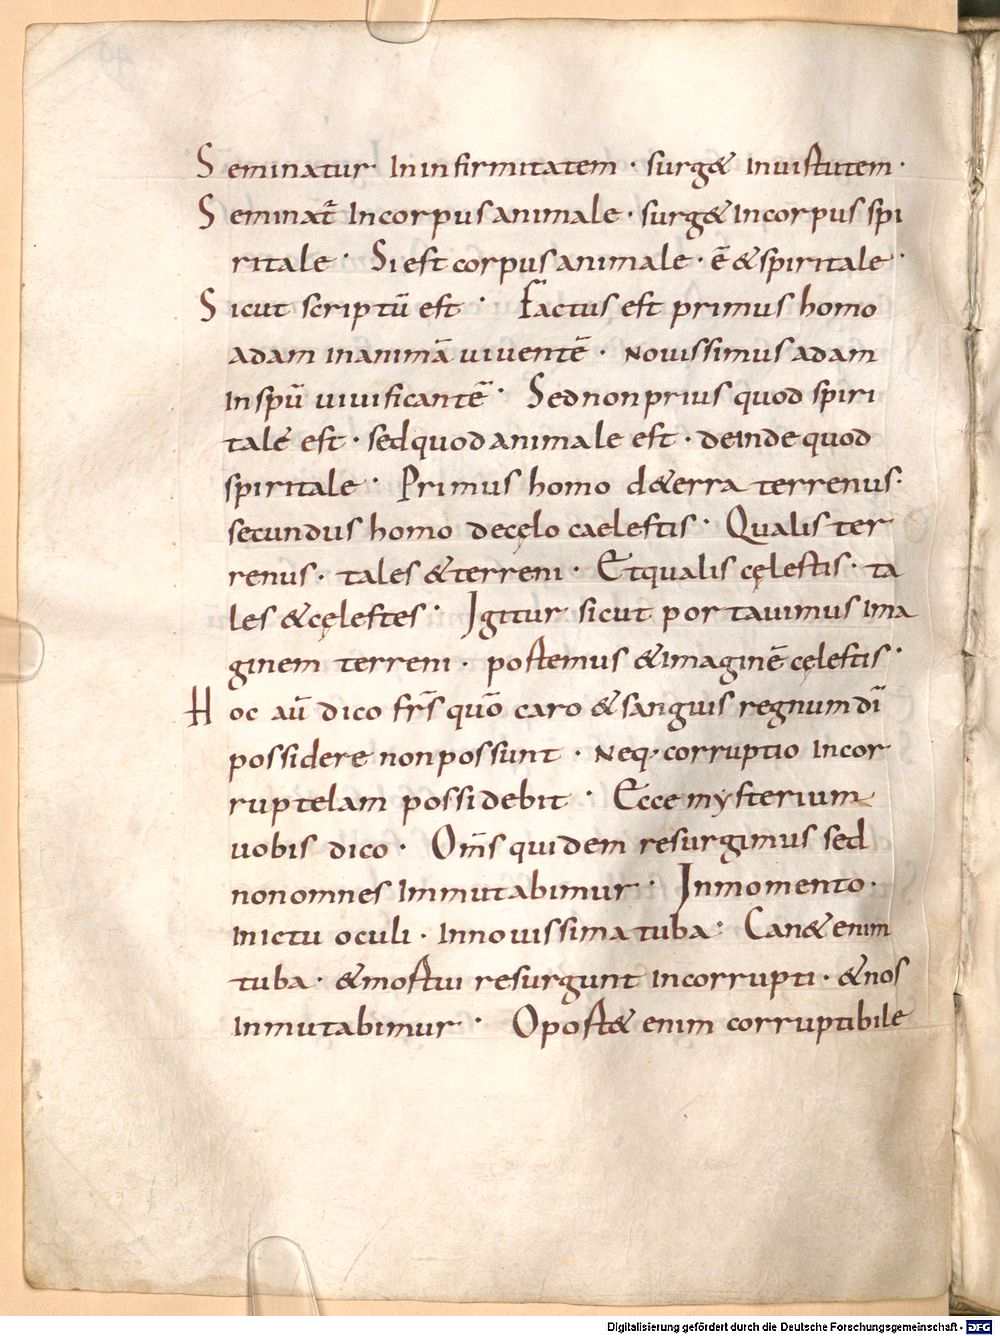 Seminatur In infirmitatem · surg& In uirtutem ·
Seminat̄ In corpus animale · surg& In corpus spi
ritale · Si est corpus animale · ē & spiritale ·
Sicut scriptū est · Factus est primus homo
adam in animā uiuentē · Nouissimus adam
in spū uiuificantē · Sed non prius quod spiri
tale est · sed quod animale est · deinde quod
spiritale · Primus homo de t&rra terrenus ·
secundus homo de cęlo caelestis · Qualis ter
renus · tales & terreni · Et qualis cęlestis · ta
les & cęlestes · Igitur sicut portauimus ima
ginem terreni · portemus & imaginē cęlestis ·
Hoc aū dico frs̄ quō caro & sanguis regnum dī
possidere non possunt · Neq· corruptio incor
ruptelam possidebit · Ecce mysterium
uobis dico · Om̄s quidem resurgimus sed
non omnes immutabimur · In momento ·
in ictu oculi · In nouissima tuba · Can& enim
tuba · & mortui resurgunt incorrupti · & nos
inmutabimur · Oport& enim corruptibile
Digitalisierung gefördert durch die Deutsche Forschungsgemeinschaft - DFG